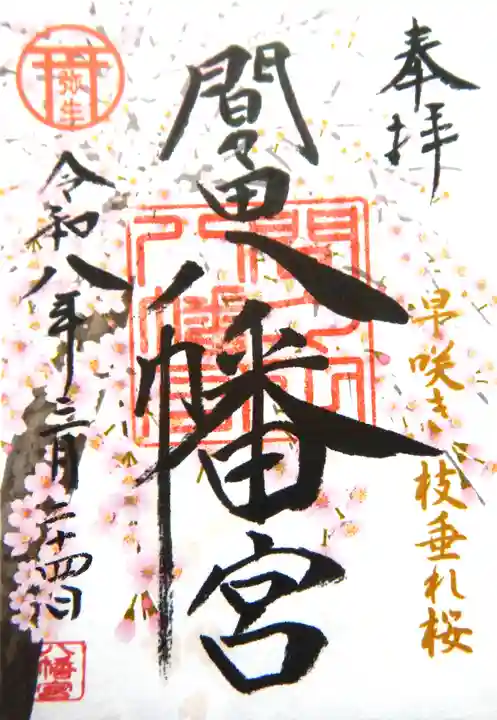 奉拝
早咲き枝垂れ桜
間々田八幡宮
弥生
令和八年三月二十四日
八幡宮